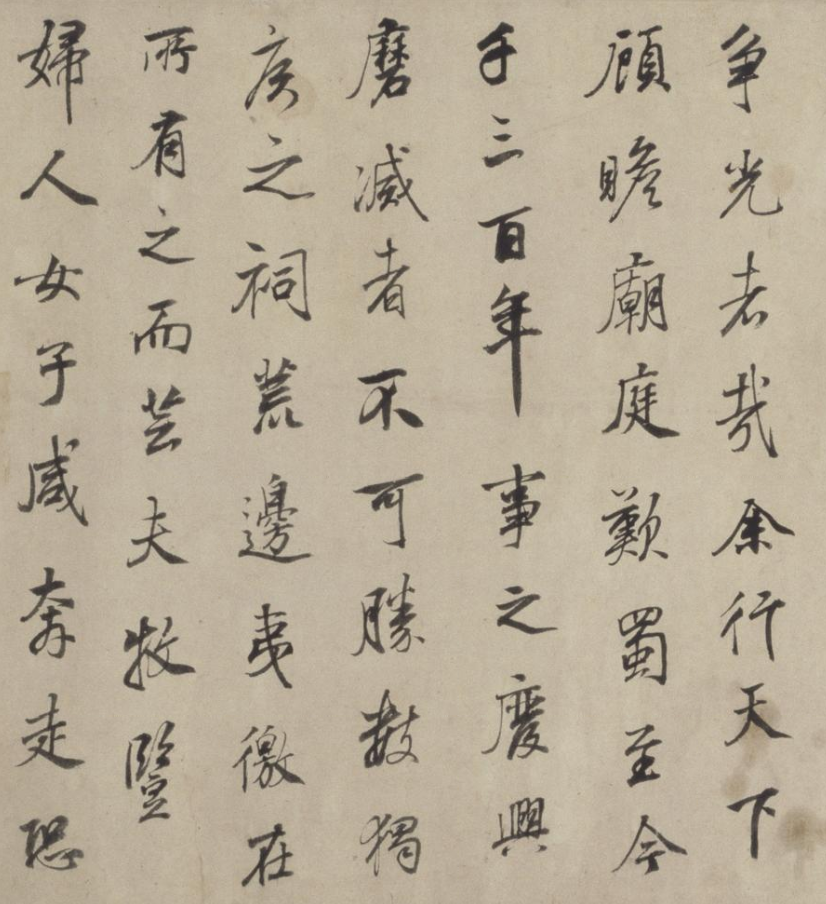 争光者哉余行天下
顧瞻廟庭歎蜀至今
千三百年事之廢興
磨滅者不可勝數獨
侯之祠荒邊夷徼在
所有之而芸夫牧豎
婦人女子咸奔走恐